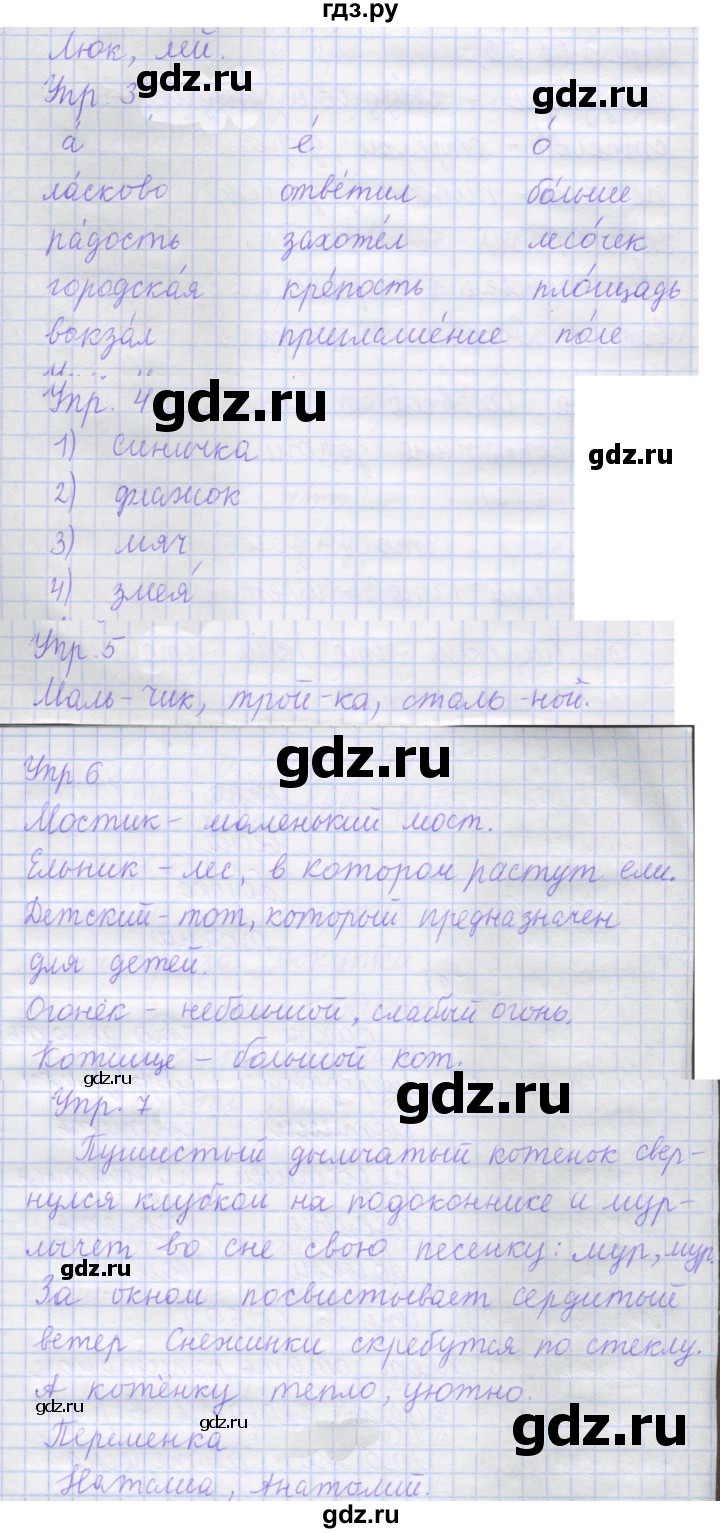 гдз.ру
Люк, лей.
gdz.ru
Упр. 3
gdz.ru
а́ е́ о́
ла́сково отве́тил бо́льше
ра́дость захоте́л лесо́чек
городска́я кре́пость пло́щадь
вокза́л приглаше́ние по́ле
Упр. 4
gdz.ru
1) синичка
gdz.ru
2) флажок
3) мяч
4) змея́
Упр. 5
Маль-чик, трой-ка, сталь-ной.
gdz.ru
Упр 6
Мостик - маленький мост.
Ельник - лес, в котором растут ели.
Детский - тот, который предназначен
для детей.
Огонёк - небольшой, слабый огонь.
Котище - большой кот.
gdz.ru
gdz.ru
Упр. 7
Пушистый дымчатый котенок свер-
нулся клубком на подоконнике и мур-
лычет во сне свою песенку: мур, мур.
gdz.ru
За окном посвистывает сердитый
ветер. Снежинки скребутся по стеклу.
А котёнку тепло, уютно.
gdz.ru
gdz.ru
gdz.ru
Переменка
Наталиа, Анатолий.
gdz.ru